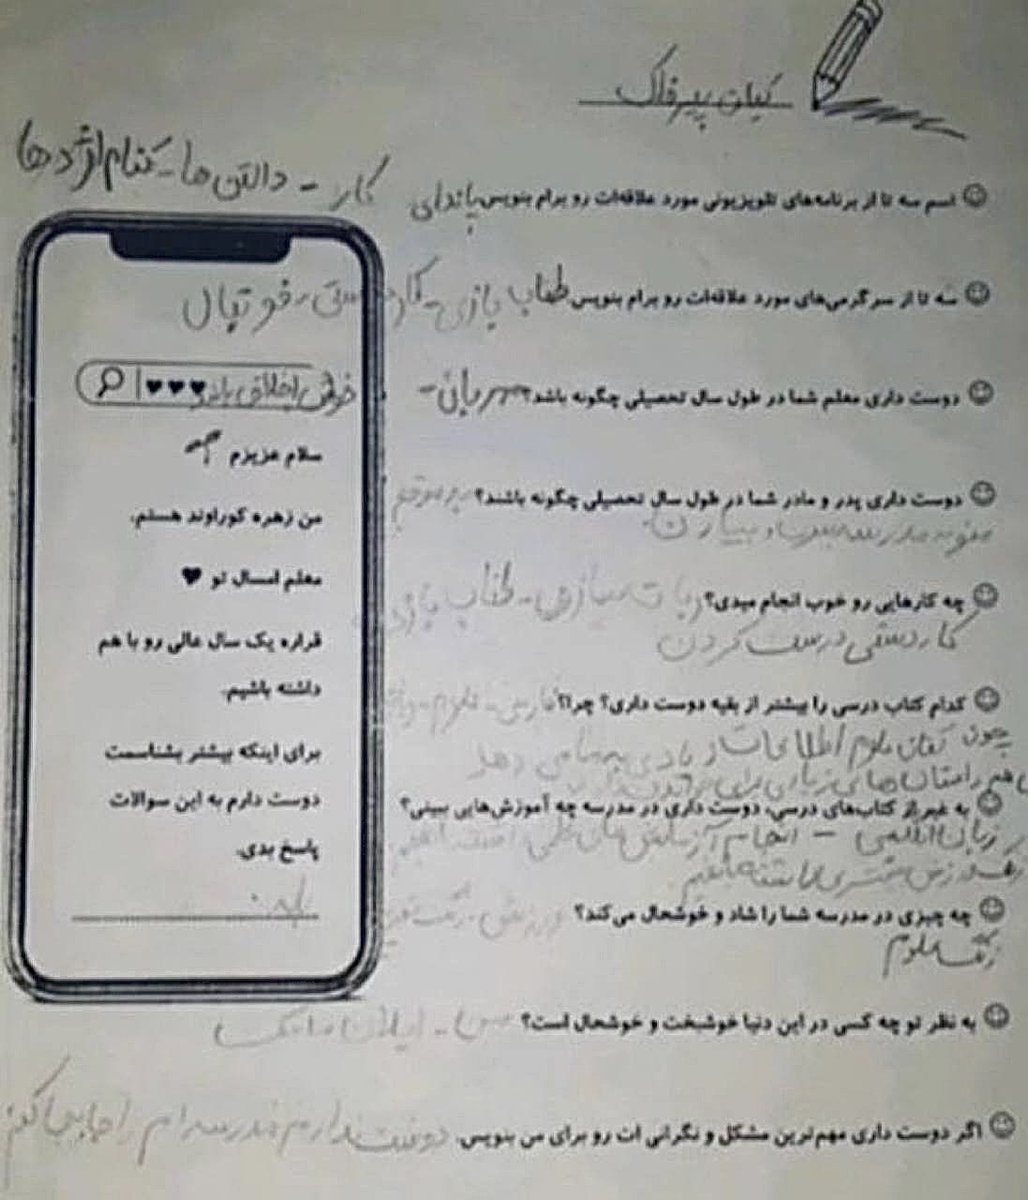 کیان پیرفلک
اسم سه تا از برنامه‌های تلویزیونی مورد علاقه‌ات رو برام بنویس پاندای کار - دالتن ها - کنام اژدها
سه تا از سرگرمی‌های مورد علاقه‌ات رو برام بنویس طناب بازی - کاردستی - فوتبال
دوست داری معلم شما در طول سال تحصیلی چگونه باشد؟ مهربان -
خوش اخلاق باشد ♥♥♥
سلام عزیزم
من زهره کوراوند هستم.
معلم امسال تو ♥
قراره یک سال عالی رو با هم
داشته باشیم.
برای اینکه بیشتر بشناسمت
دوست دارم به این سوالات
پاسخ بدی.
دوست داری پدر و مادر شما در طول سال تحصیلی چگونه باشند؟ به موقع
چه کارهایی رو خوب انجام میدی؟ ربات سازی - طناب بازی
کاردستی درست کردن
کدام کتاب درسی را بیشتر از بقیه دوست داری؟ چرا؟ فارسی - علوم
چون کتاب علوم اطلاعات زیادی به ما می دهد
داستان های زیادی برای
به غیر از کتاب‌های درسی، دوست داری در مدرسه چه آموزش‌هایی ببینی؟
زبان انگلیسی - انجام آزمایش های علمی
زنگ ورزش بیشتری داشته باشیم
چه چیزی در مدرسه شما را شاد و خوشحال می‌کند؟ ورزش
زنگ علوم
به نظر تو چه کسی در این دنیا خوشبخت و خوشحال است؟ - ایلان ماسک
اگر دوست داری مهم‌ترین مشکل و نگرانی ات رو برای من بنویس. دوست ندارم مدرسه ام را جابجا کنم